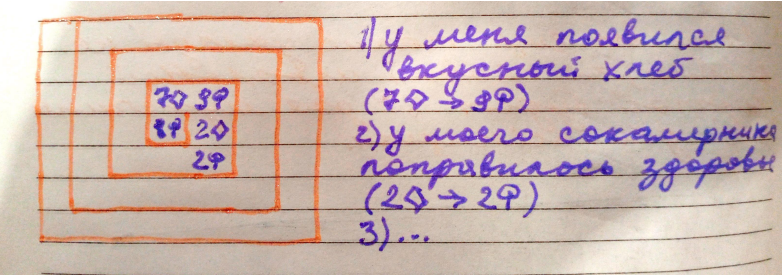 7◇ 9♀
8♀ 2◇
2♀
1) у меня появился
вкусный хлеб
(7◇ → 9♀)
2) у моего сокамерника
поправилось здоровье
(2◇ → 2♀)
3) ...